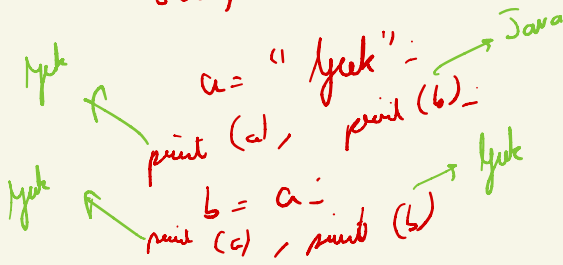 Java
Geek
a = "Geek" -
print (a), print (b) -
Geek
Geek
b = a -
print (a), print (b)